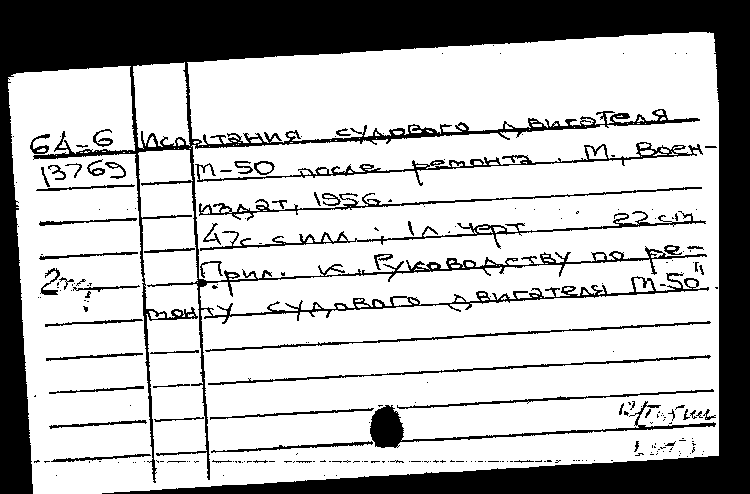 64-6 Испытания судового двигателя
13769 М-50 после ремонта. М., Воен-
издат, 1956.
47с. с илл.; 1л. черт 22 см
Прил. к „Руководству по ре-
монту судового двигателя М-50".